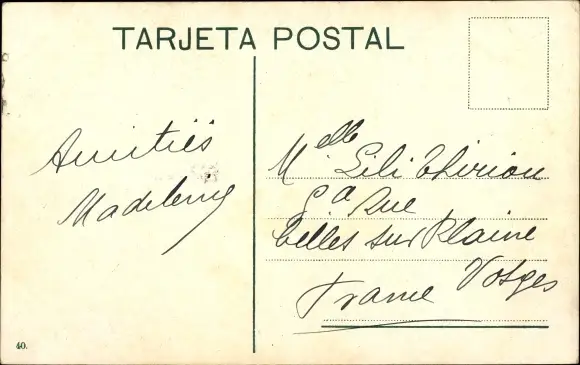 TARJETA POSTAL
Amitiés
Madeleine
Melle Lili Thirion
La Rue
Celles sur Plaine
Vosges
France
40.